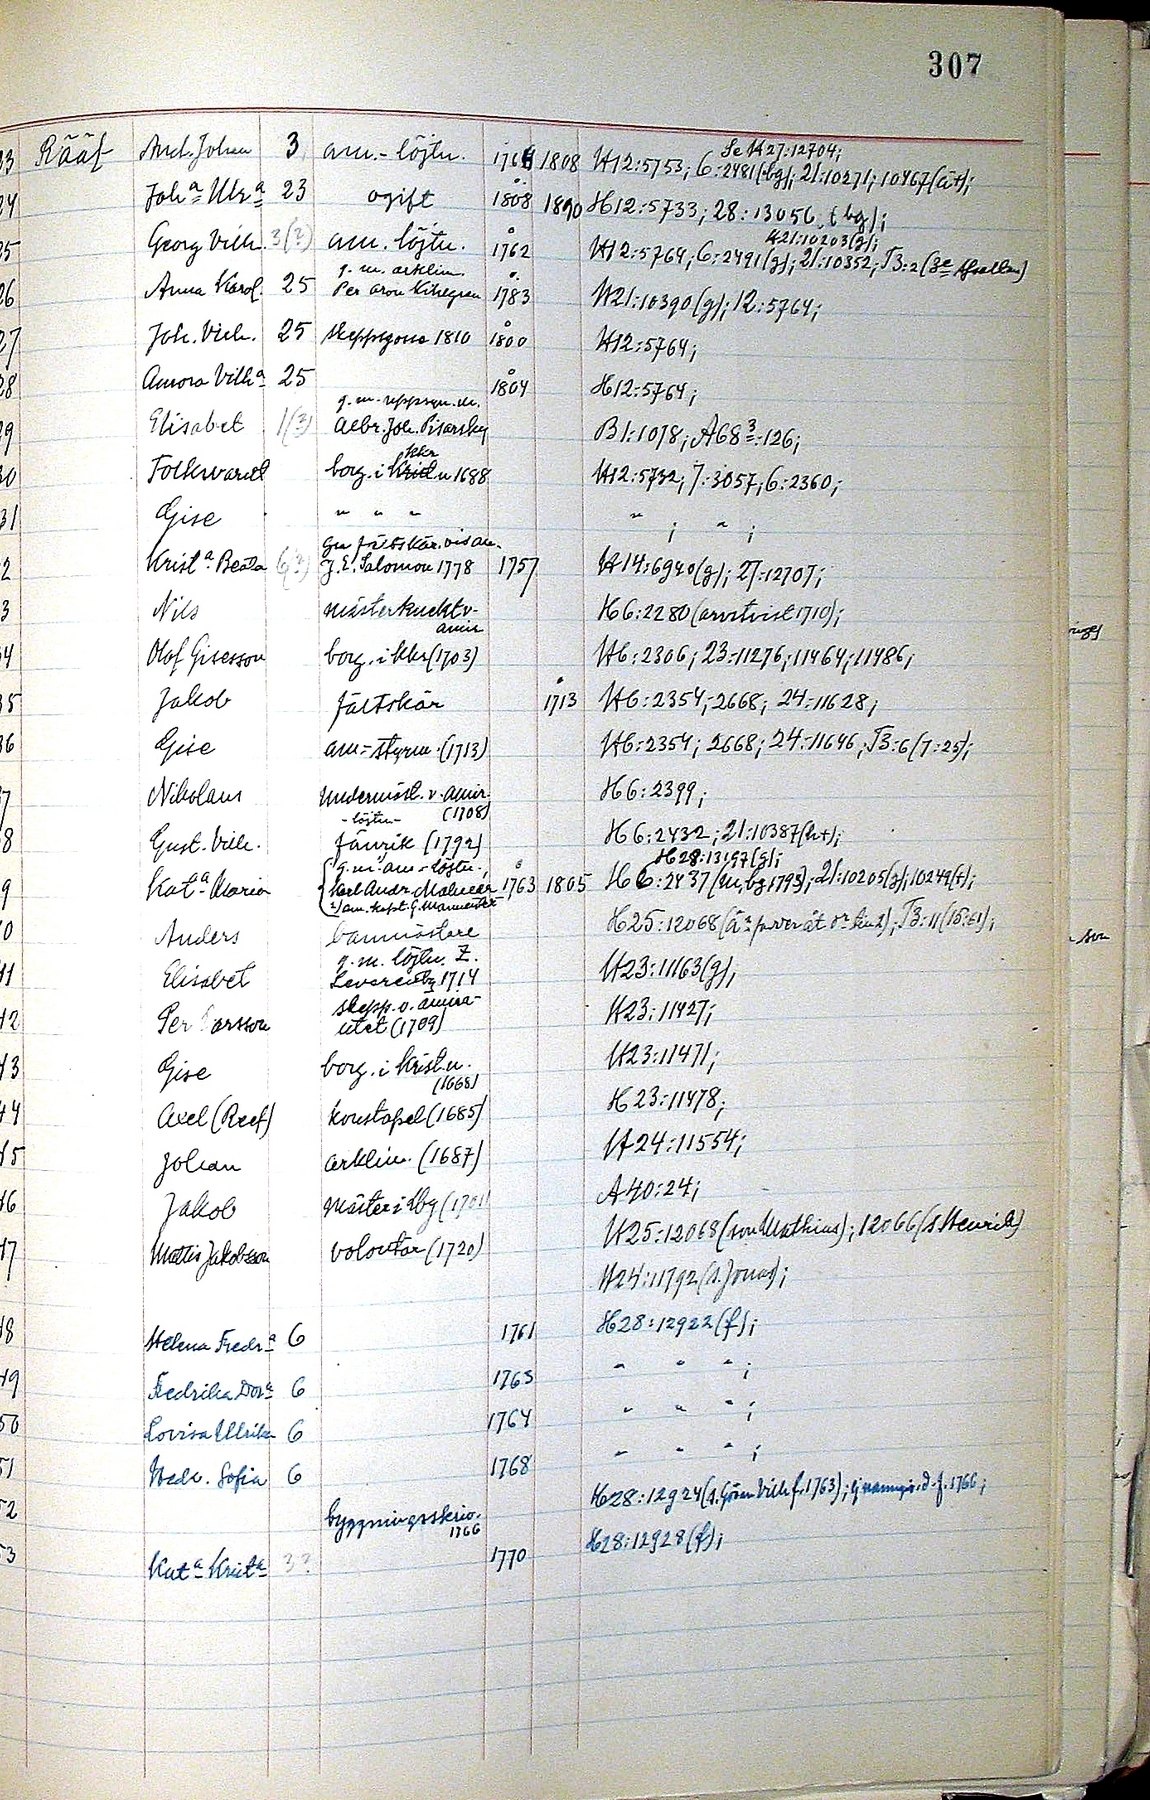 307
Se H27:12704;
33 Rääf And. Johan 3 am.-löjtn. 1764 1808 H12:5753; 6:2481(bg); 21:10271; 10467(ät);
24 Joha Ulra 23 ogift 1808 1890 H12:5733; 28:13056 (bg);
H21:10203(g);
25 Georg Vilh. 3(?) am. löjtn. 1762 H12:5764; 6:2491(g); 21:10352; T3:2
g. m. arklim.
26 Anna Karol. 25 Per Aron 1783 H21:10390(g); 12:5764;
27 Joh. Vilh. 25 skeppsgosse 1810 1800 H12:5764;
28 Aurora Vilha 25 1804 H12:5764;
29 Elisabet 1(3) Albr. Joh. Pisarsky B1:1078; A68 3:126;
kkr
30 Folkvard borg. i 1688 H12:5732; 7:3057; 6:2360;
31 Gise " " " " ; " ;
2 Krista Beata 6(3) J. E. Salomon 1778 1757 H14:6940(g); 27:12707;
3 Nils mästerknekt v. H6:2280 (arvtvist 1710);
amir
4 Olof Gisesson borg. i kkr (1703) H6:2306; 23:11276; 11464; 11486;
35 Jakob fältskär 1713 H6:2354; 2668; 24:11628;
36 Gise am-styrm. (1713) H6:2354; 2668; 24:11646; T3:6(7:25);
37 Nikolaus undermäst. v. amir. H6:2399;
(1708)
-löjtn-
8 Gust. Vilh. fänrik (1792) H6:2432; 21:10387(ht);
g. m. am-löjtn., H28:13197(g);
9 Kata Maria Karl Andr. 1763 1805 H6:2437(m, bg 1793); 21:10205(g); 10249(t);
2) am. kapt. G.
0 Anders H25:12068 T3:11(15:61);
g. m. löjtn. Z.
41 Elisabet 1714 H23:11163(g);
skepp. v. amira-
42 Per arsson litet (1709) H23:11427;
43 Gise borg. i Krist.n. H23:11471;
(1668)
44 Axel (Reef) konstapel (1685) H23:11478;
45 Johan arklim. (1687) H24:11554;
46 Jakob mäster i Kbg (1701 A40:24;
47 Mattis Jakobsson volontär (1720) H25:12068 (son Mathias); 12066 (s Henrik)
H24:11792 (s. Jonas);
48 Helena Fredra 6 1761 H28:12922(f);
49 Fredrika Dora 6 1763 " " ";
50 Lovisa Ulrika 6 1764 " " ";
51 Hedv. Sofia 6 1768 " " ";
52 byggningsskriv. H28:12924 (s. Göran Vilh f. 1763); d. f. 1766;
1766
53 Kata Krista 3? 1770 H28:12928(f);
son